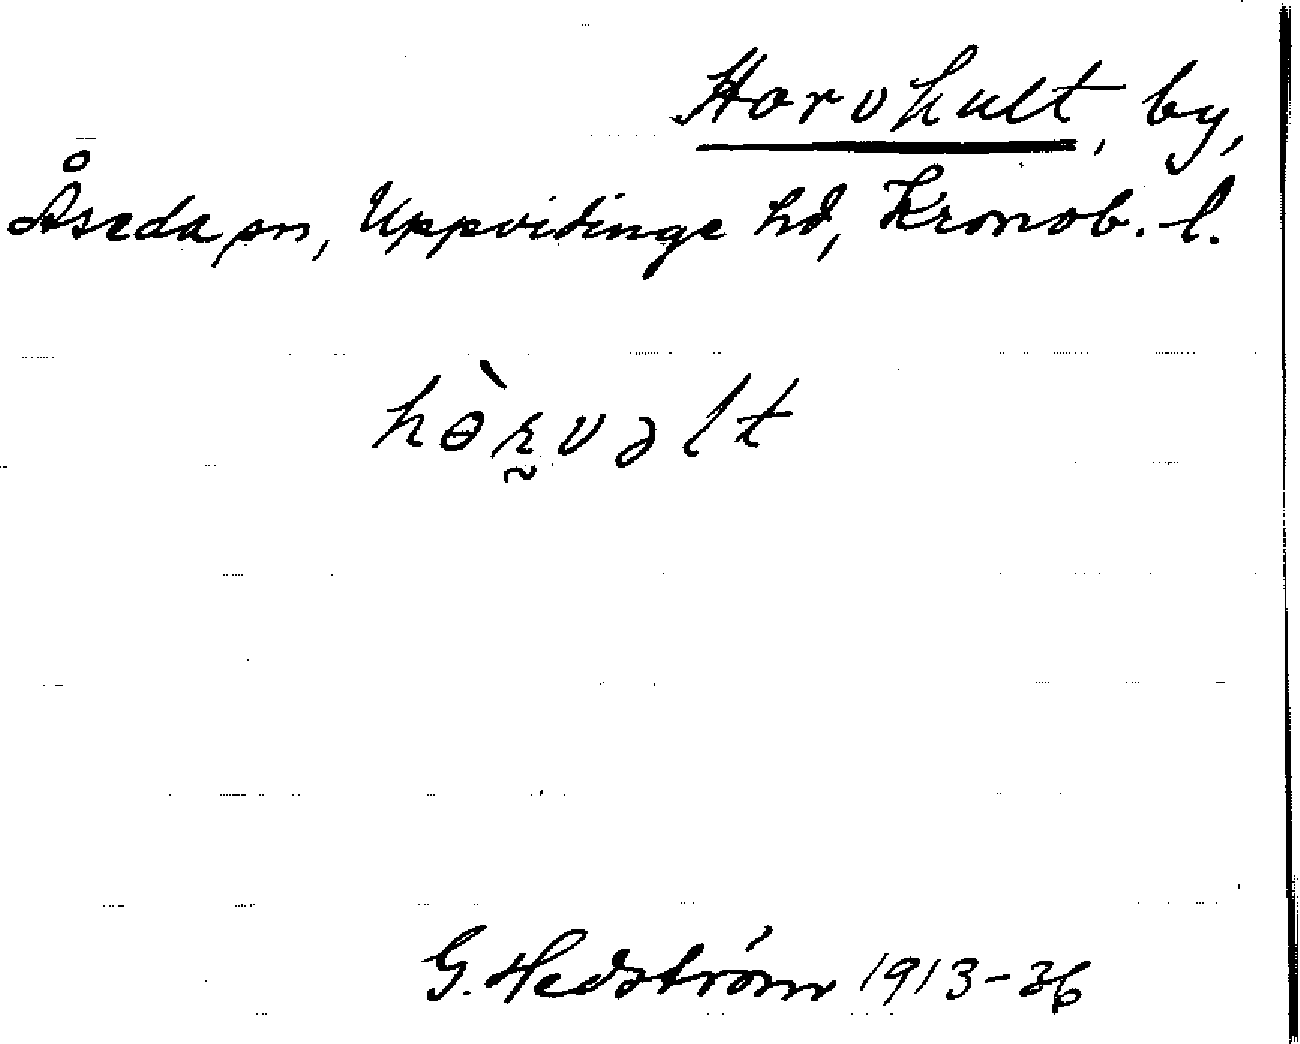 Horvhult, by,
Åseda sn, Uppvidinge hd, Kronob. l.
hɵ̀r̰vəlt
G. Hedström 1913-36